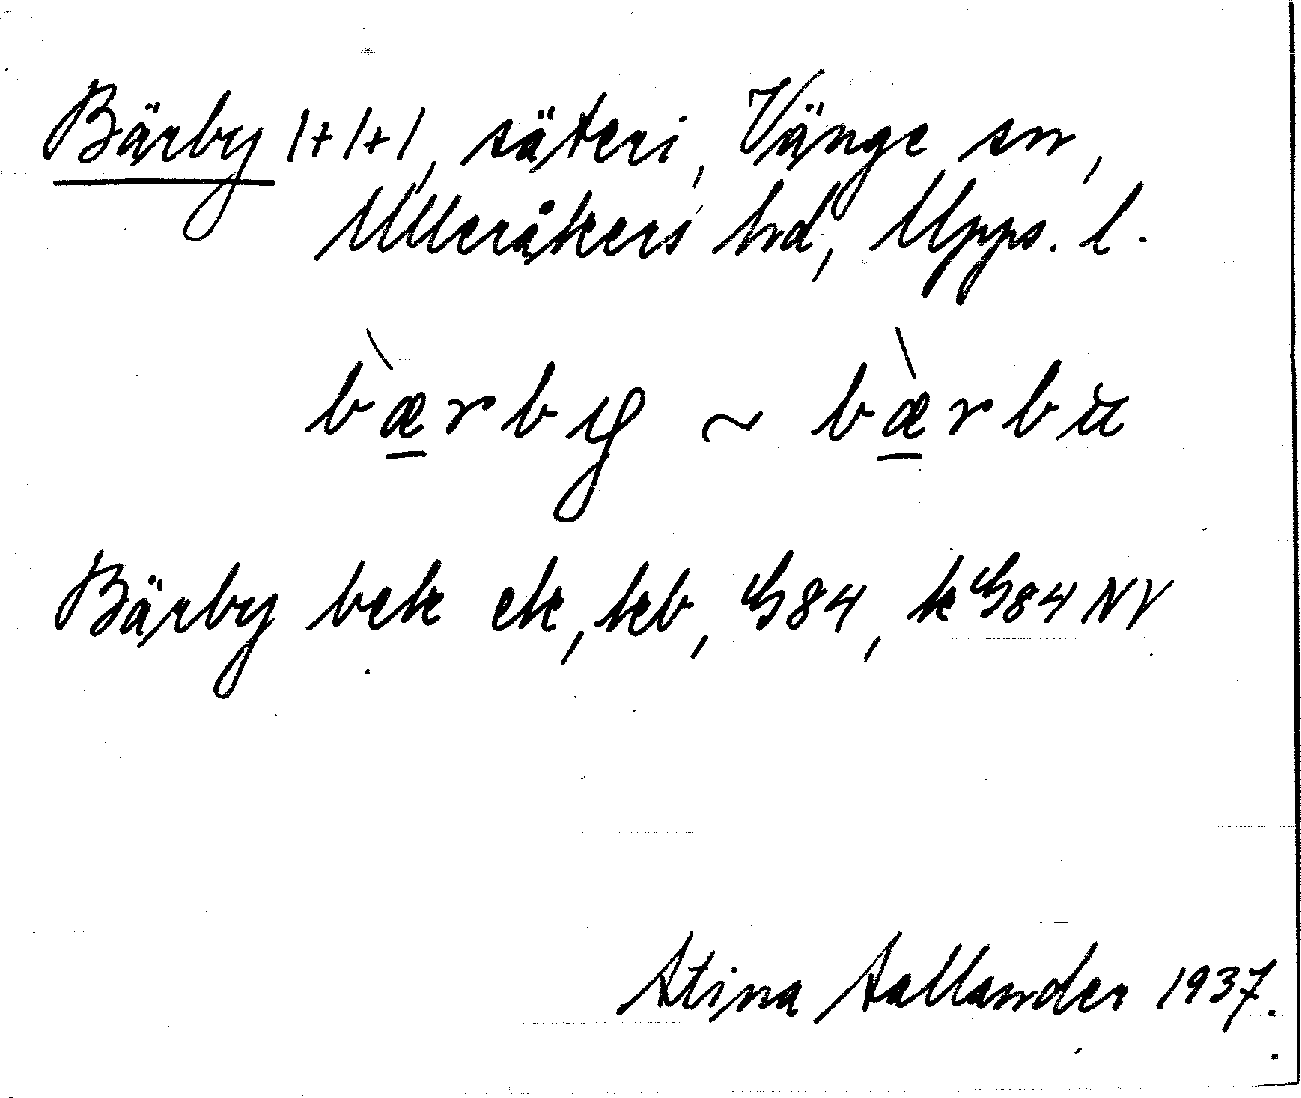 Bärby 1+1+1, säteri, Vänge sn,
Ulleråkers hd, Upps. l.
bæ̀rby ~ bæ̀rbu
Bärby bek ek, kb, G84, kG84 NV
Stina Sallander 1937.